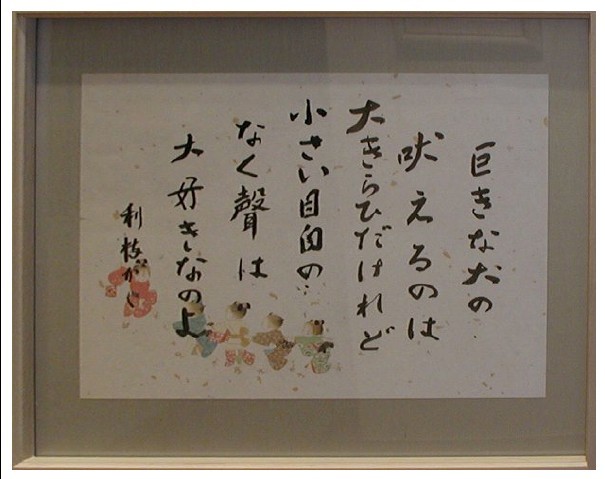 巨きな犬の
吠えるのは
大きらひだけれど
小さい目白の
なく聲は
大好きなのよ
利枝